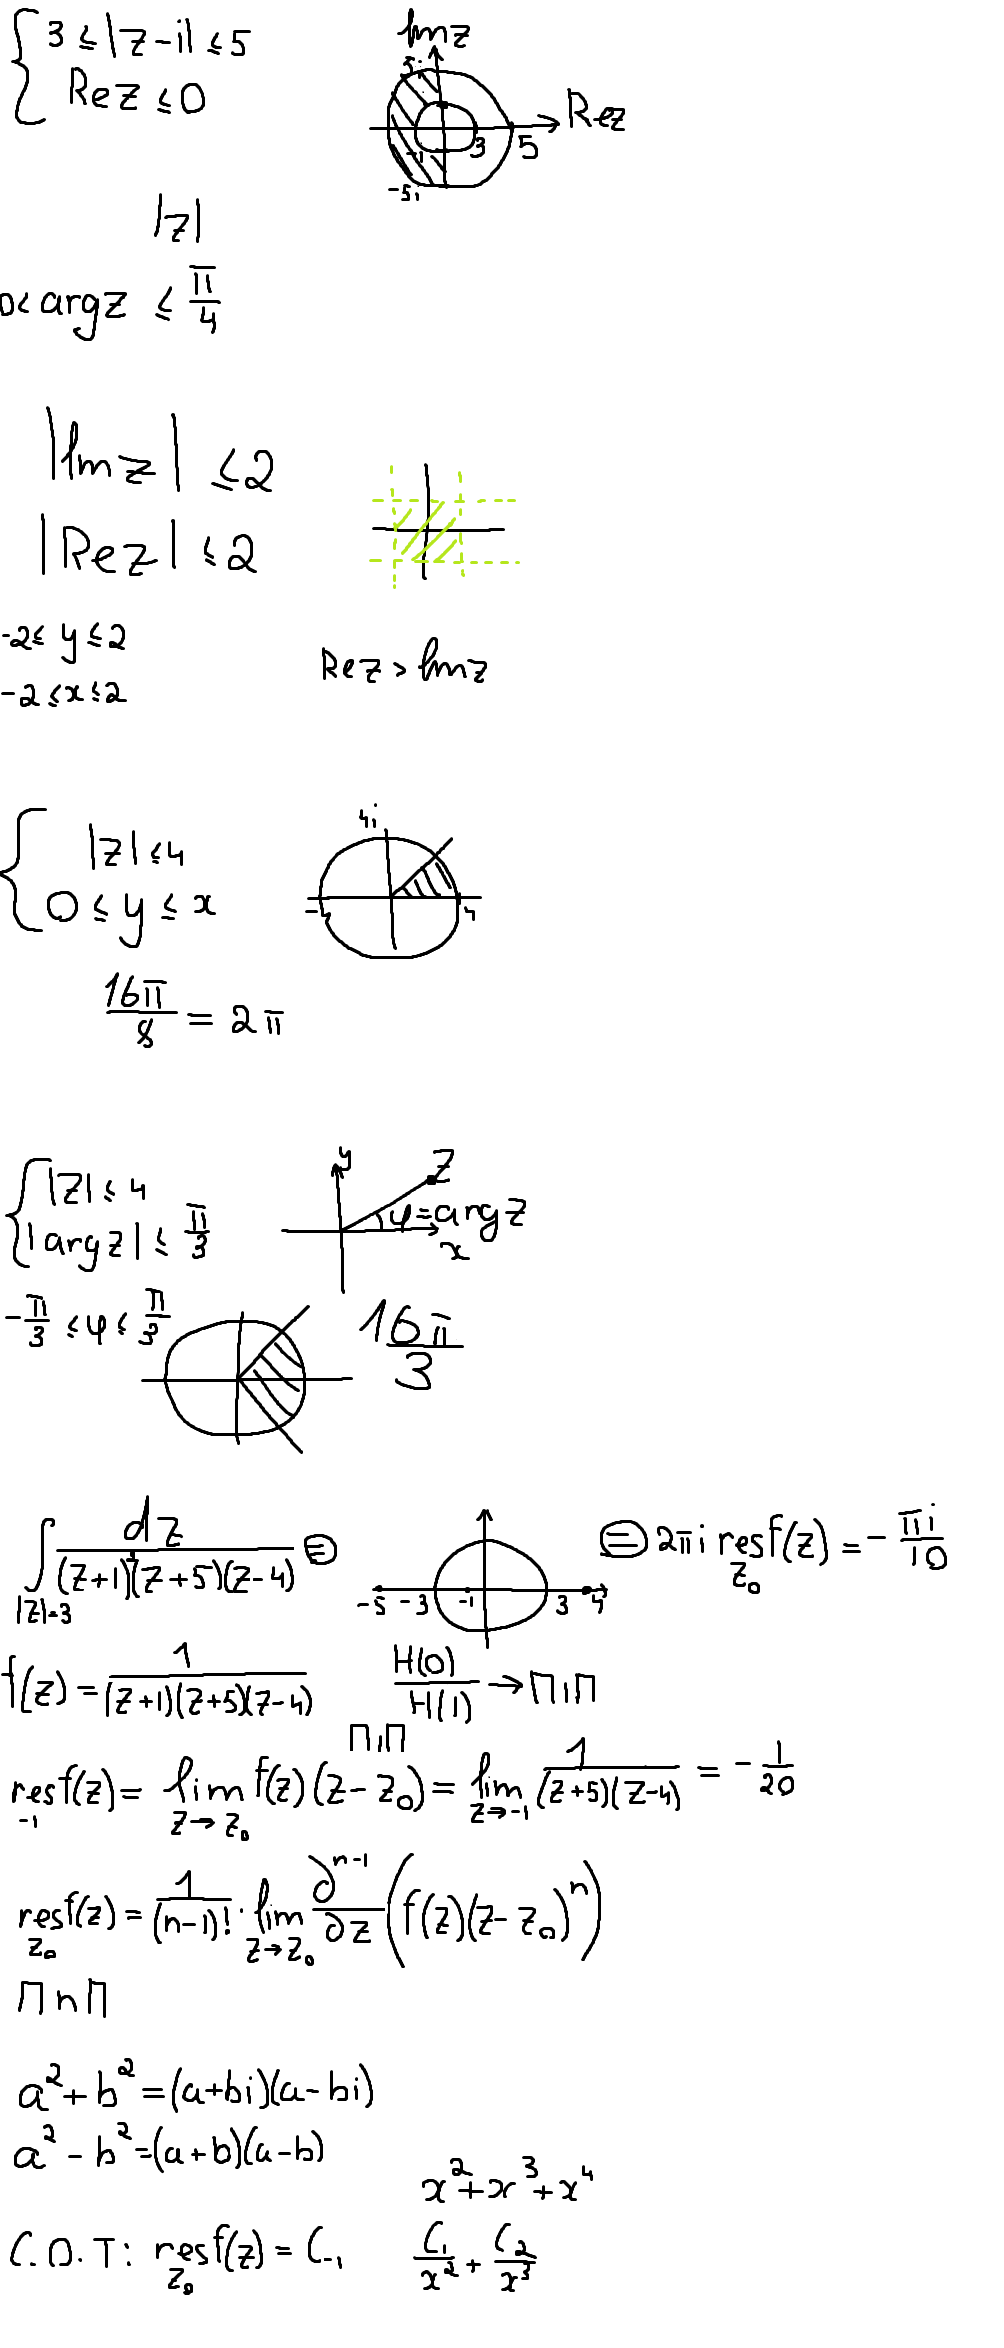 3 ≤ |z - i| ≤ 5
Re z ≤ 0
Im z
5i
Re z
-1 3 5
-5i
|z|
0 < arg z ≤ π/4
|Im z| ≤ 2
|Re z| ≤ 2
-2 ≤ y ≤ 2
-2 ≤ x ≤ 2
Re z > Im z
|z| ≤ 4
0 ≤ y ≤ x
4i
-4 4
16π/8 = 2π
|z| ≤ 4
|arg z| ≤ π/3
y
z
φ = arg z
x
-π/3 ≤ φ ≤ π/3
16π/3
∫_{|z|=3} dz/((z+1)(z+5)(z-4)) =
-5 -3 -1 3 4
= 2πi res_{z₀} f(z) = -πi/10
f(z) = 1/((z+1)(z+5)(z-4))
H(0)/H(1) → П1П
П1П
res_{-1} f(z) = lim_{z→z₀} f(z)(z - z₀) = lim_{z→-1} 1/((z+5)(z-4)) = -1/20
res_{z₀} f(z) = 1/(n-1)! · lim_{z→z₀} ∂ⁿ⁻¹/∂z (f(z)(z - z₀)ⁿ)
П n П
a² + b² = (a+bi)(a-bi)
a² - b² = (a+b)(a-b)
x² + x³ + x⁴
С.О.Т: res_{z₀} f(z) = C₋₁
C₁/x² + C₂/x³